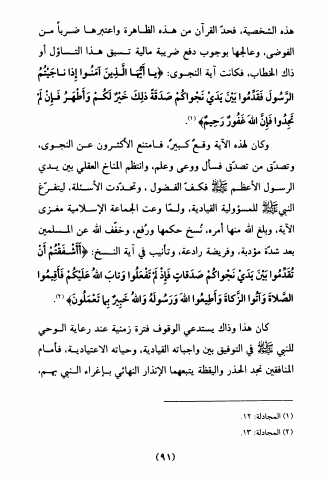 هذه الشخصية، فحدّ القرآن من هذه الظاهرة واعتبرها ضرباً من
الفوضى، وعالجها بوجوب دفع ضريبة مالية تسبق هذا التساؤل أو
ذاك الخطاب، فكانت آية النجوى: ﴿يا أَيُّهَا الَّذِينَ آمَنُوا إِذا ناجَيْتُمُ
الرَّسُولَ فَقَدِّمُوا بَيْنَ يَدَيْ نَجْواكُمْ صَدَقَةً ذلِكَ خَيْرٌ لَكُمْ وَأَطْهَرُ فَإِنْ لَمْ
تَجِدُوا فَإِنَّ اللهَ غَفُورٌ رَحِيمٌ﴾(١).
وكان لهذه الآية وقع كبير، فامتنع الأكثرون عن النجوى،
وتصدّق من تصدّق فسأل ووعى وعلم، وانتظم المناخ العقلي بين يدي
الرسول الأعظم ﷺ فكفّ الفضول، وتحدّدت الأسئلة، ليتفرّغ
النبي ﷺ للمسؤولية القيادية، ولمّا وعت الجماعة الإسلامية مغزى
الآية، وبلغ الله منها أمره، نُسخ حكمها ورُفع، وخفّف الله عن المسلمين
بعد شدّة مؤدبة، وفريضة رادعة، وتأنيب في آية النسخ: ﴿أَأَشْفَقْتُمْ أَنْ
تُقَدِّمُوا بَيْنَ يَدَيْ نَجْواكُمْ صَدَقاتٍ فَإِذْ لَمْ تَفْعَلُوا وَتابَ اللهُ عَلَيْكُمْ فَأَقِيمُوا
الصَّلاةَ وَآتُوا الزَّكاةَ وَأَطِيعُوا اللهَ وَرَسُولَهُ وَاللهُ خَبِيرٌ بِما تَعْمَلُونَ﴾(٢).
كان هذا وذاك يستدعي الوقوف فترة زمنية عند رعاية الوحي
للنبي ﷺ في التوفيق بين واجباته القيادية، وحياته الاعتيادية، فأمام
المنافقين نجد الحذر واليقظة يتبعهما الإنذار النهائي بإغراء النبي بهم،
(١) المجادلة: ١٢.
(٢) المجادلة: ١٣.
(٩١)